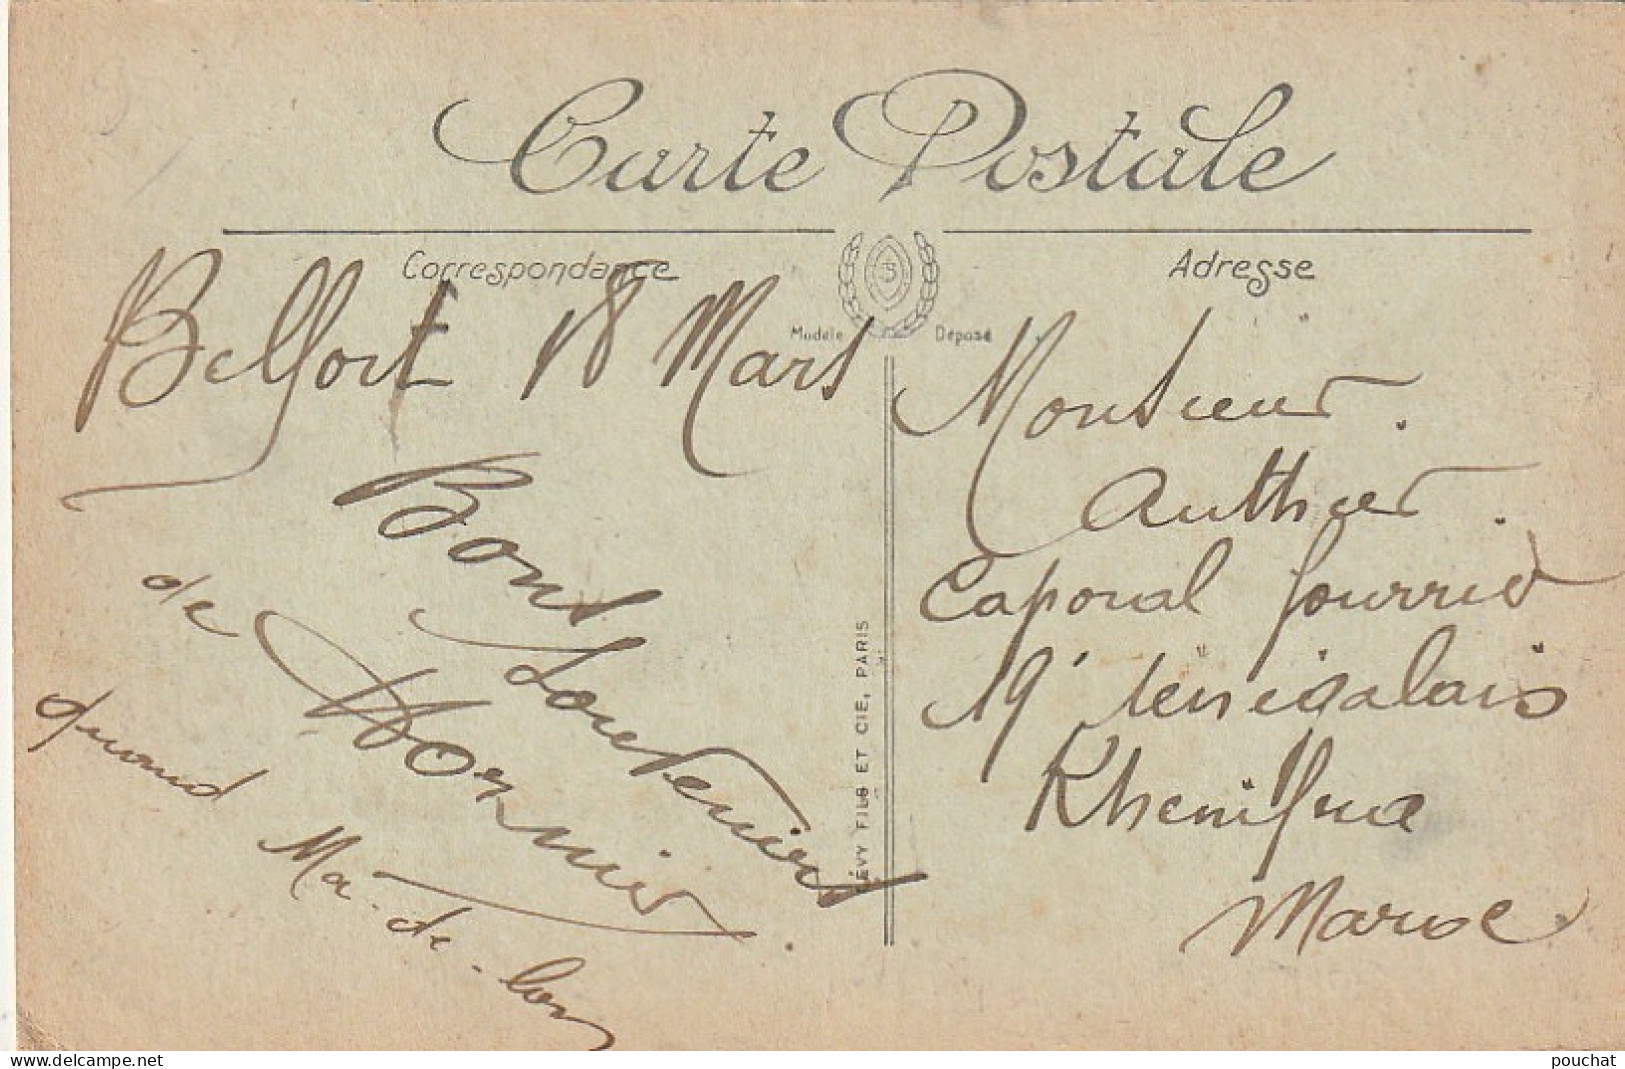 Carte Postale
Correspondance
Adresse
Modèle Déposé
Belfort 18 Mars
Bons
Souvenirs
de
quand Ma-de-lon
Monsieur
Authier
Caporal fourrier
19e Sénégalais
Khenifra
Maroc
LÉVY FILS ET CIE, PARIS
delcampe.net
pouchat